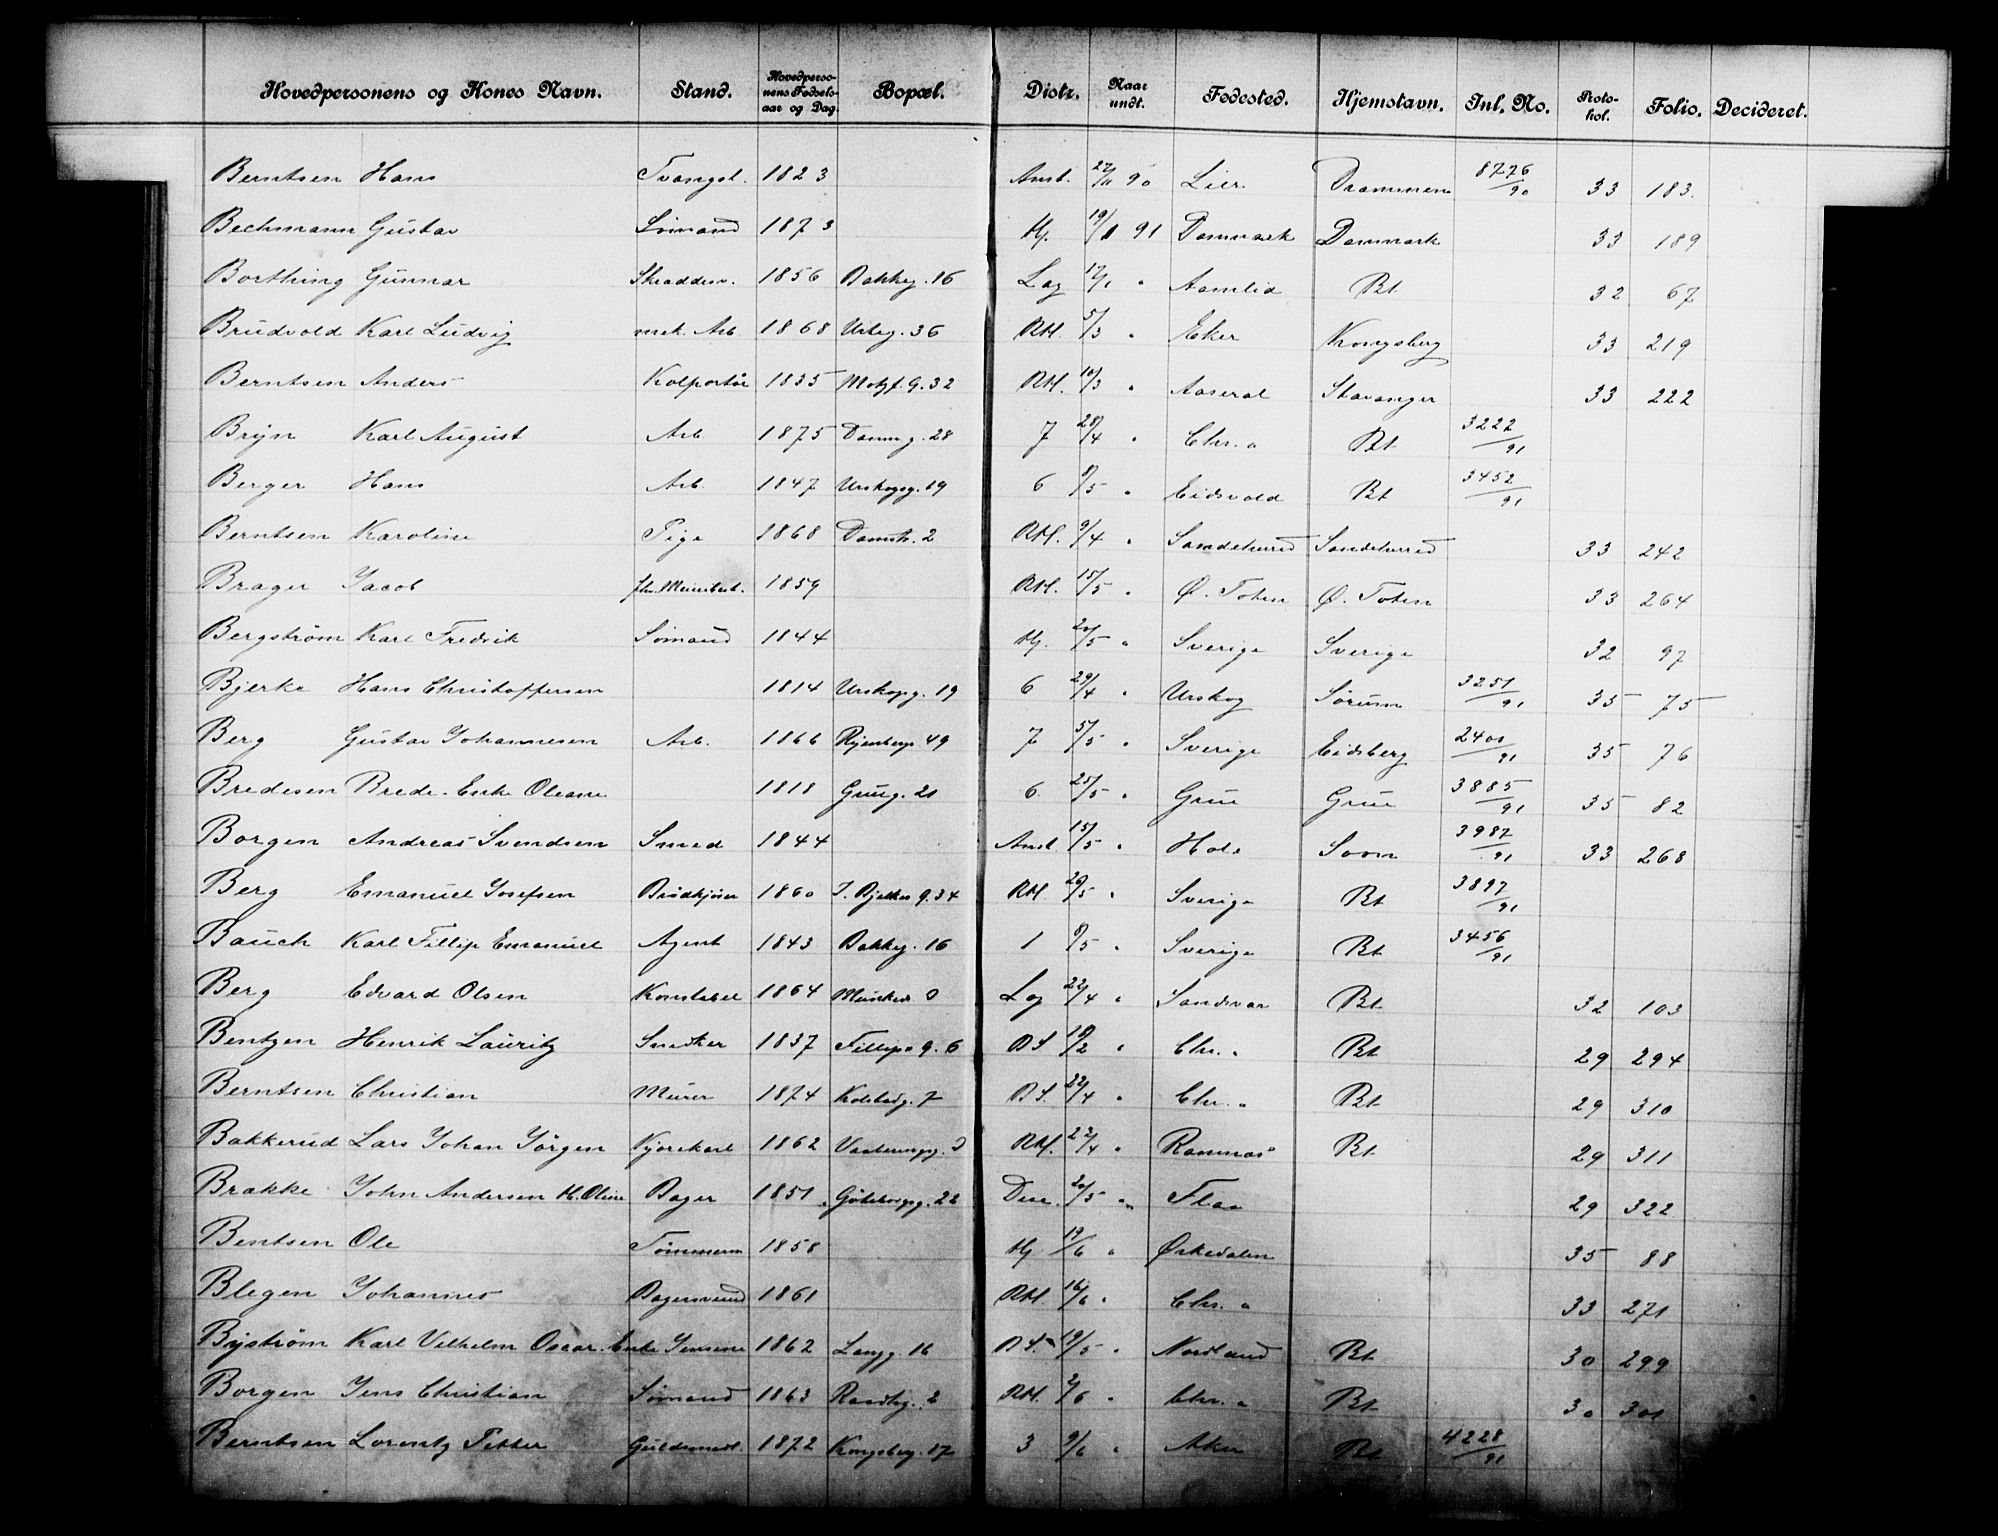 Hovedpersonens og Kones Navn. Stand. Hovedpersonens Fødselsaar og Dag. Bopæl. Distr. Naar undt. Fødested. Hjemstavn. Inl. No. Protokol. Folio. Decideret.
Berntsen Hans Tvangsl. 1823 Anst. 27/11 90 Lier Drammen 8776/90 33 183.
Bechmann Gustav Sømand 1873 Hj. 19/1 91 Danmark Danmark 33 189
Borthing Gunnar Skreddersv. 1856 Bakkeg. 16 Lag 12/1 " Aamlid Bt 32 67
Brudvold Karl Ludvig mek. Arb 1868 Urteg. 36 RM. 5/3 " Eker Kongsberg 33 219
Berntsen Anders Kolportør 1835 Motzf. G. 32 RM. 10/3 " Aaseral Stavanger 33 222
Bryn Karl August Arb 1875 Danm g. 28 7 28/4 " Chr. a Bt 3222/91
Berger Hans Arb. 1847 Urskogsg. 19 6 8/5 " Eidsvold Bt 3452/91
Berntsen Karoline Pige 1868 Damstr. 2 RM. 9/4 " Sandeherred Sandeherred 33 242
Brager Jacob 1859 RM. 15/5 " Ø. Toten Ø. Toten 33 264
Bergstrøm Karl Fredrik Sømand 1844 Hj. 20/5 " Sverige Sverige 32 97
Bjerke Hans Christoffersen 1814 Urskogsg. 19 6 29/4 " Urskog Sørum 3251/91 35 75
Berg Gustav Johannesen Arb. 1866 Ryenbergs 49 7 5/5 " Sverige Eidsberg 2401/91 35 76
Bredesen Brede. Enke Oleane 1818 Grueg. 21 6. 25/5 " Grue Grue 3885/91 35 82
Borgen Andreas Svendsen Smed 1844 Anst. 15/5 " Hole Soon 3987/91 33 268
Berg Emanuel Josefsen Brødkjører 1860 J. Bjelkes G. 34 RM. 26/5 " Sverige Bt 3897/91
Bauch Karl Fillip Emanuel Agent 1843 Bakkeg. 16 1 8/5 " Sverige Bt 3456/91
Berg Edvard Olsen Konstabel 1864 Munked 0 Lag 22/4 " Sandsvær Bt 32 103
Bentzen Henrik Lauritz Snedker 1837 Fillips g. 6 BS. 18/2 " Chr. a Bt 29 294
Berntsen Christian Murer 1874 Kolstadg. 7 BS. 22/4 " Chr. a Bt 29 310
Bakkerud Lars Johan Jørgen Kjørekarl 1862 Vaalerengg. RM. 22/4 " Ramnæs Bt 29 311
Brække John Andersen H. Oline Bager 1851 Göteborgg. 22 Dee. 20/5 " Flaa 29 322
Bentsen Ole Tømmerm 1858 Hj 19/6 " Ørkedalen 35 88
Blegen Johannes Bagersvend 1861 RM. 16/6 " Chr. a 33 271
Bystrøm Karl Vilhelm Oscar. Enke Jensine 1862 Langg. 16 BS. 19/5 " Nordland Bt 30 299
Borgen Jens Christian Sømand 1863 Rostkg. 2 RM. 2/6 " Chr. a Bt 30 301
Berntsen Lorentz Petter Guldsmedl. 1872 Kongsberg. 17 3 9/6 " Aker Bt 4228/91